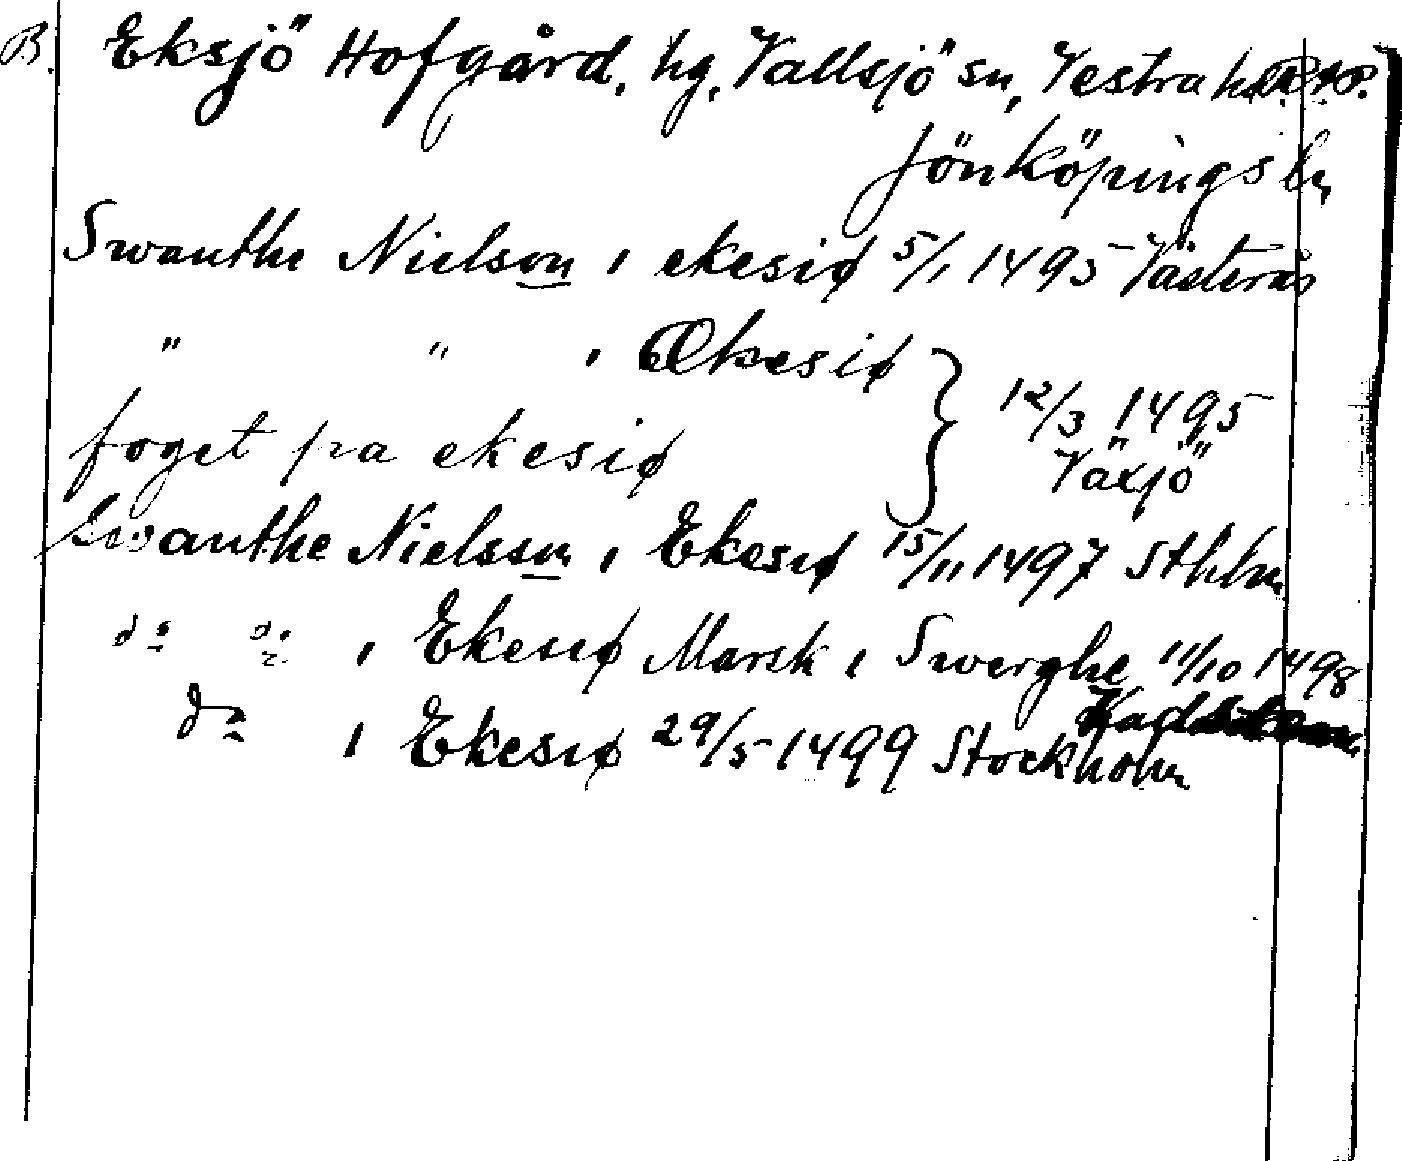 B. Eksjö Hofgård, hg, Vallsjö sn, Vestra hd
Jönköpings ln
Swanthe Nielson i ekesiø 5/1 1495 Västerås
" " i Ekesiø
foget pa ekesiø } 12/3 1495 Växjö
Swanthe Nielsson i Ekesiø 15/11 1497 Sthlm
do do i Ekesiø Marsk i Swerghe 11/10 1498
do i Ekesiø 29/5 1499 Stockholm